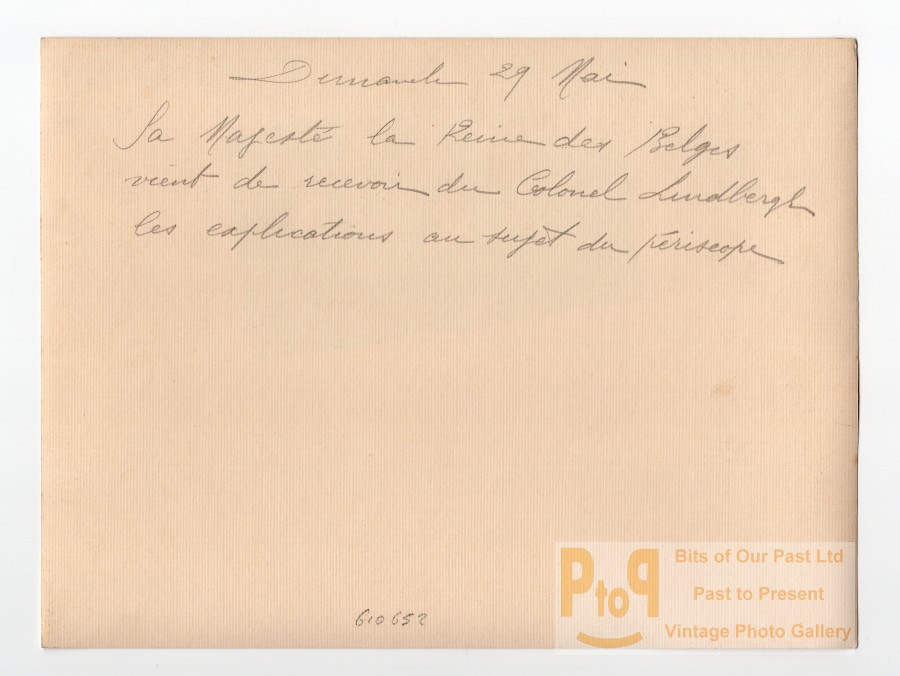 Dimanche 29 Mai
Sa Majesté la Reine des Belges
vient de recevoir du Colonel Lindbergh
les explications au sujet du périscope
610652
PtoP
Bits of Our Past Ltd
Past to Present
Vintage Photo Gallery